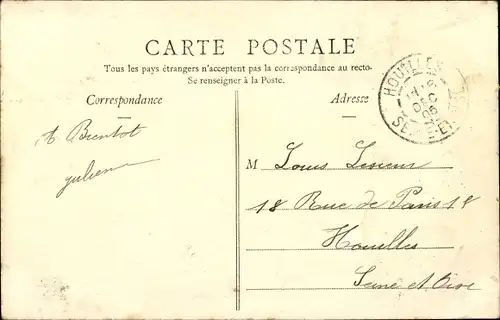 CARTE POSTALE
Tous les pays étrangers n'acceptent pas la correspondance au recto-
Se renseigner à la Poste.
Correspondance
Adresse
HOUILLES
DEC
06
A Bientot
julien
M Louis
18 Rue de Paris 18
Houilles
Seine et Oise